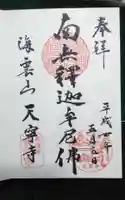 奉拝
平成 年
五月 日
南無釋迦牟尼佛
海雲山 天寧寺